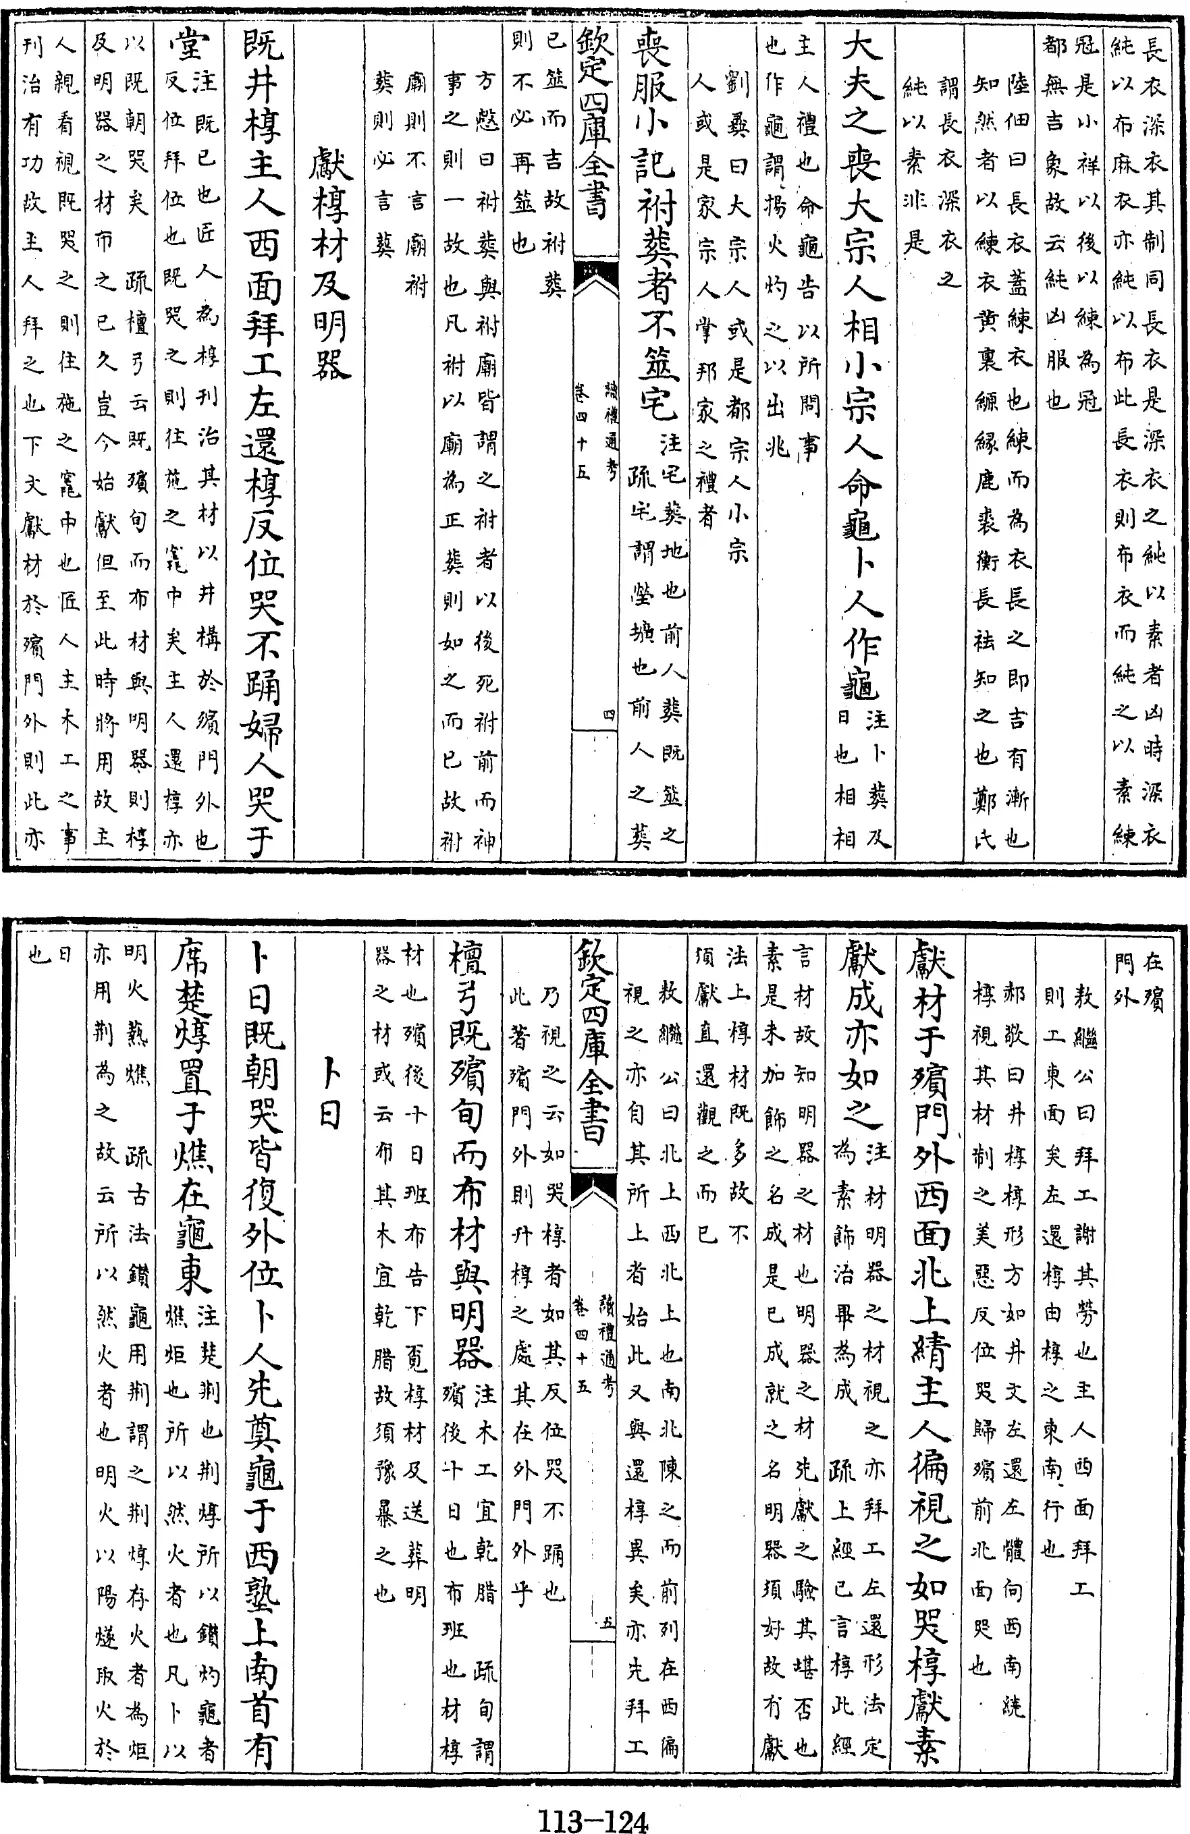 長衣深衣其制同長衣是深衣之純以素者凶時深衣
純以布麻衣亦純以布此長衣則布衣而純之以素練
冠是小祥以後以練為冠
都無吉象故云純凶服也
陸佃曰長衣蓋練衣也練而為衣長之即吉有漸也
知然者以練衣黃裏縓緣鹿裘衡長袪知之也鄭氏
謂長衣深衣之
純以素非是
大夫之喪大宗人相小宗人命龜卜人作龜
注卜葬及
日也相相
主人禮也命龜告以所問事
也作龜謂揚火灼之以出兆
劉彞曰大宗人或是都宗人小宗
人或是家宗人掌邦家之禮者
喪服小記祔葬者不筮宅
注宅葬地也前人葬既筮之
疏宅謂塋壙也前人之葬
欽定四庫全書
讀禮通考
卷四十五
四
已筮而吉故祔葬
則不必再筮也
方慤曰祔葬與祔廟皆謂之祔者以後死祔前而神
事之則一故也凡祔以廟為正葬則如之而已故祔
廟則不言廟祔
葬則必言葬
獻椁材及明器
既井椁主人西面拜工左還椁反位哭不踊婦人哭于
堂
注既已也匠人為椁刊治其材以井構於殯門外也
反位拜位也既哭之則往施之竁中矣主人還椁亦
以既朝哭矣 疏檀弓云既殯旬而布材與明器則椁
及明器之材布之已久豈今始獻但至此時將用故主
人親看視既哭之則往施之竁中也匠人主木工之事
刊治有功故主人拜之也下文獻材於殯門外則此亦
在殯
門外
敖繼公曰拜工謝其勞也主人西面拜工
則工東面矣左還椁由椁之東南行也
郝敬曰井椁椁形方如井文左還左體向西南繞
椁視其材制之美惡反位哭歸殯前北面哭也
獻材于殯門外西面北上綪主人徧視之如哭椁獻素
獻成亦如之
注材明器之材視之亦拜工左還形法定
為素飾治畢為成 疏上經已言椁此經
言材故知明器之材也明器之材先獻之驗其堪否也
素是未加飾之名成是已成就之名明器須好故有獻
法上椁材既多故不
須獻直還觀之而已
敖繼公曰北上西北上也南北陳之而前列在西偏
視之亦自其所上者始此又與還椁異矣亦先拜工
欽定四庫全書
讀禮通考
卷四十五
五
乃視之云如哭椁者如其反位哭不踊也
此著殯門外則井椁之處其在外門外乎
檀弓既殯旬而布材與明器
注木工宜乾腊 疏旬謂
殯後十日也布班也材椁
材也殯後十日班布告下覓椁材及送葬明
器之材或云布其木宜乾腊故須豫暴之也
卜日
卜日既朝哭皆復外位卜人先奠龜于西塾上南首有
席楚焞置于燋在龜東
注楚荆也荆焞所以鑽灼龜者
燋炬也所以然火者也凡卜以
明火爇燋 疏古法鑽龜用荆謂之荆焞存火者為炬
亦用荆為之故云所以然火者也明火以陽燧取火於
日
也
113-124